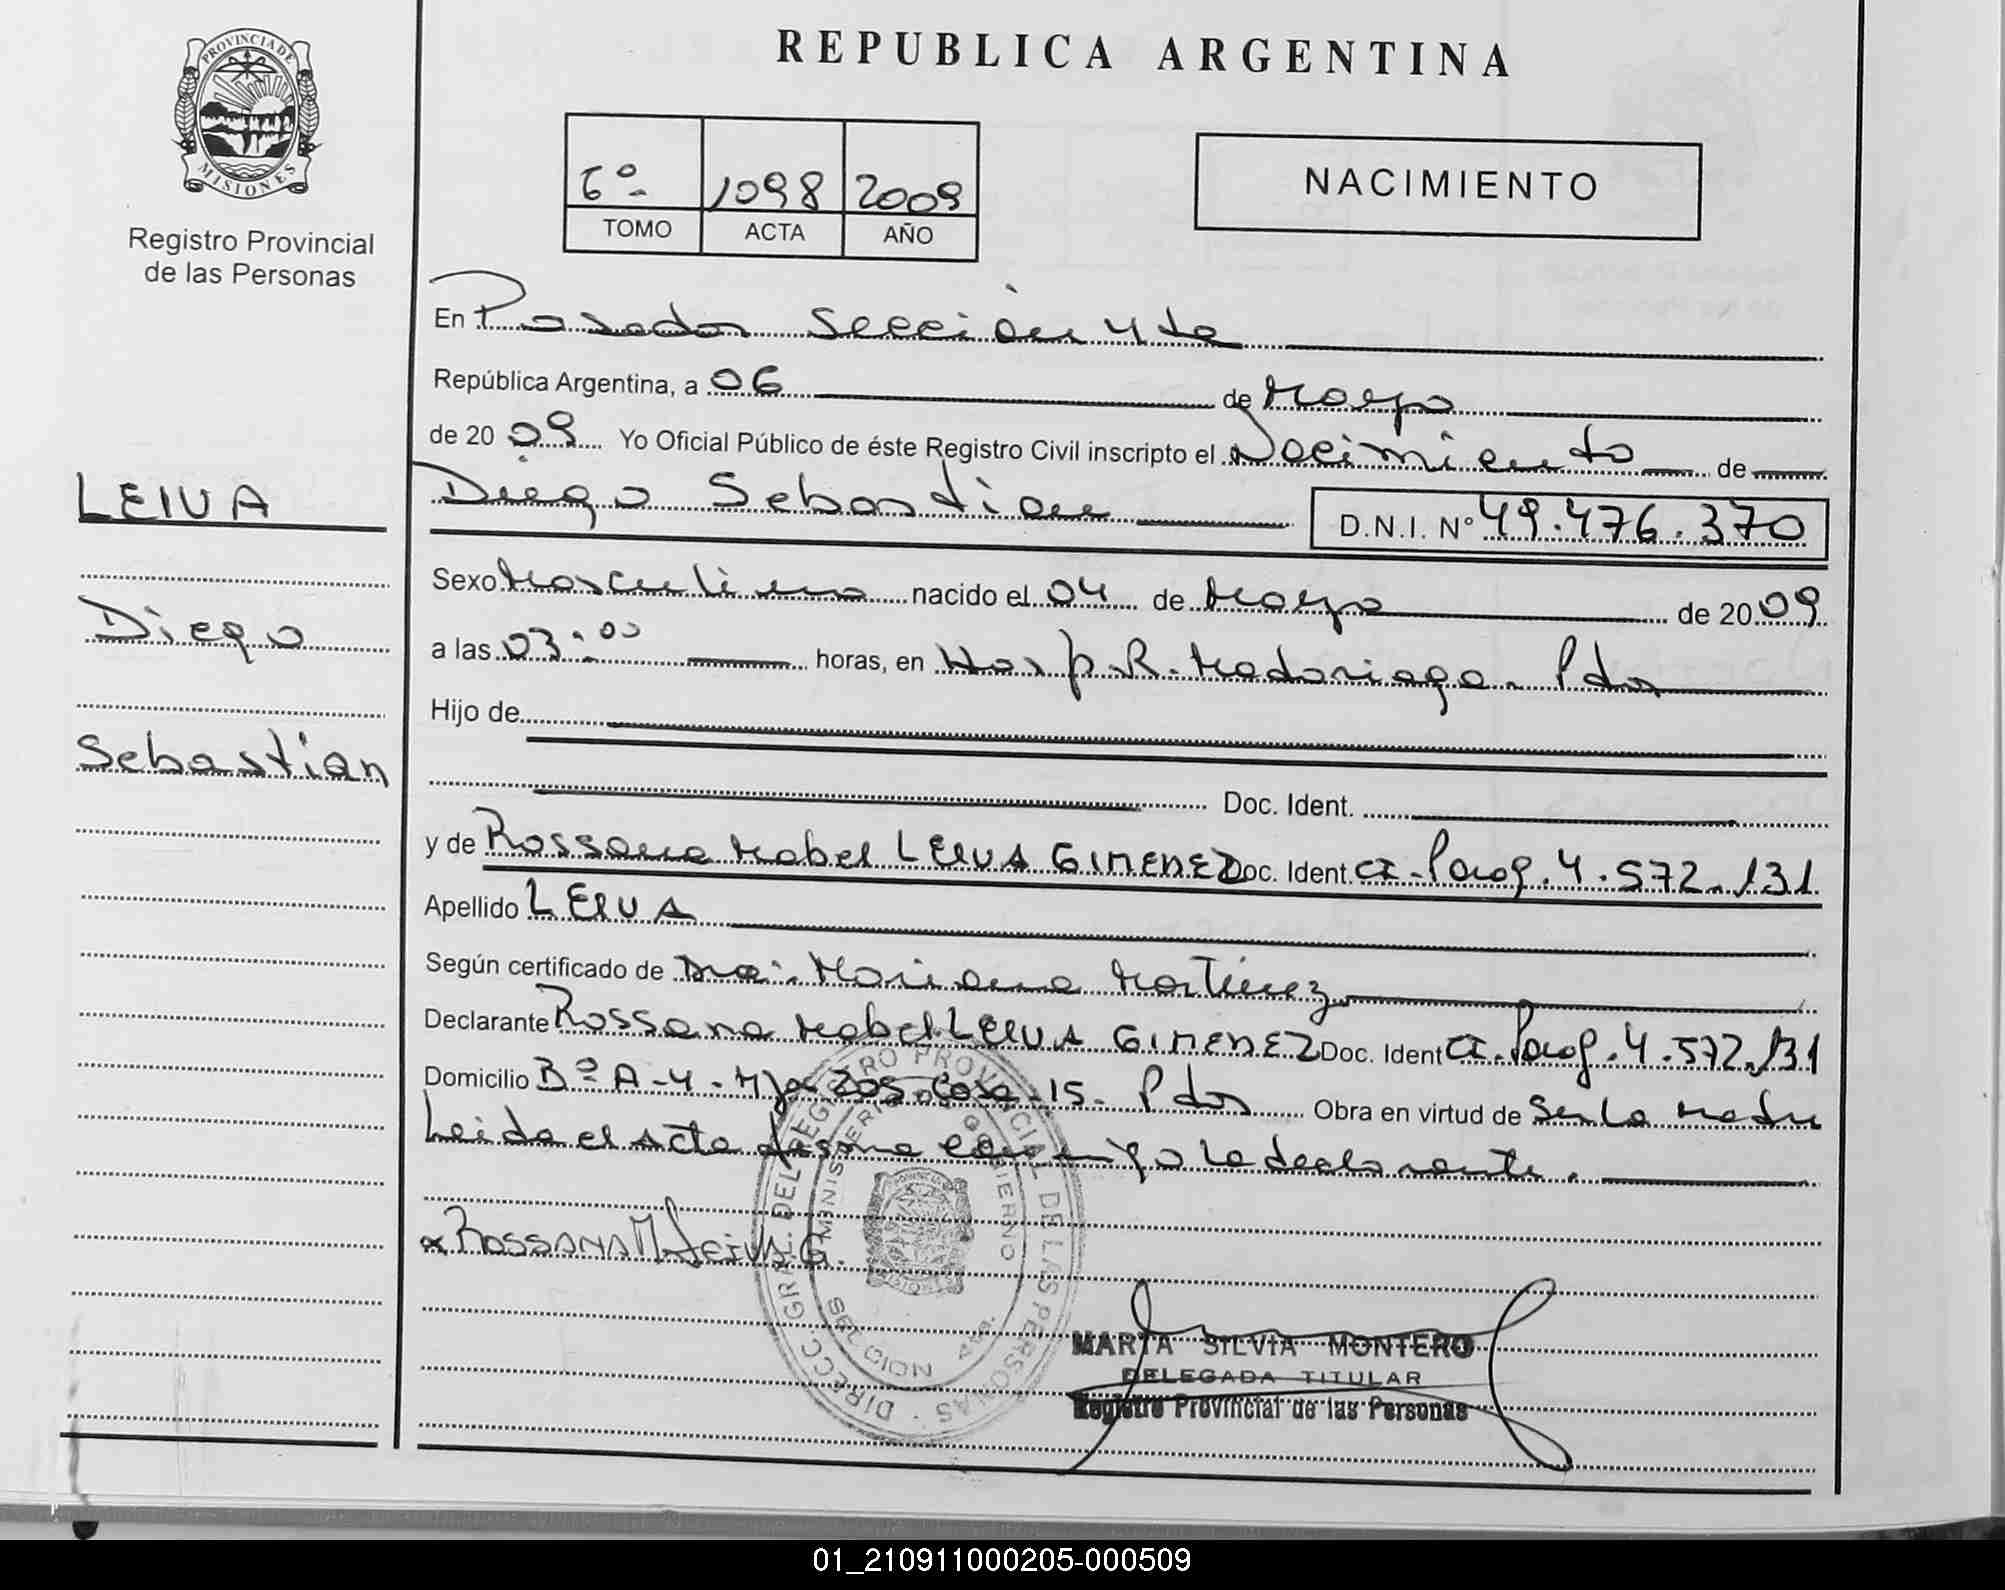 REPUBLICA ARGENTINA
PROVINCIA DE
MISIONES
Registro Provincial
de las Personas
6º 1098 2009
TOMO ACTA AÑO
NACIMIENTO
LEIVA
Diego
Sebastian
En Posadas Sección 4ta
República Argentina, a 06 de Mayo
de 2009 Yo Oficial Público de éste Registro Civil inscripto el Nacimiento de
Diego Sebastian D.N.I. Nº 49.476.370
Sexo Masculino nacido el 04 de Mayo de 2009
a las 03:00 horas, en Hosp. R. Madariaga. Pdas
Hijo de
Doc. Ident.
y de Rossana Mabel LEIVA GIMENEZ Doc. Ident. CI. Parag. 4.572.131
Apellido LEIVA
Según certificado de Dra. Mariana Martinez
Declarante Rossana Mabel LEIVA GIMENEZ Doc. Ident CI. Parag. 4.572.131
Domicilio Bº A-4. Mza 205 Casa 15. Pdas Obra en virtud de Ser la Madre
Leida el Acta firma conmigo la declarante.
x ROSSANA M LEIVA G.
DIRECC. GRAL. DEL REGISTRO PROVINCIAL DE LAS PERSONAS
MINISTERIO DE GOBIERNO
MARTA SILVIA MONTERO
DELEGADA TITULAR
Registro Provincial de las Personas
01_210911000205-000509